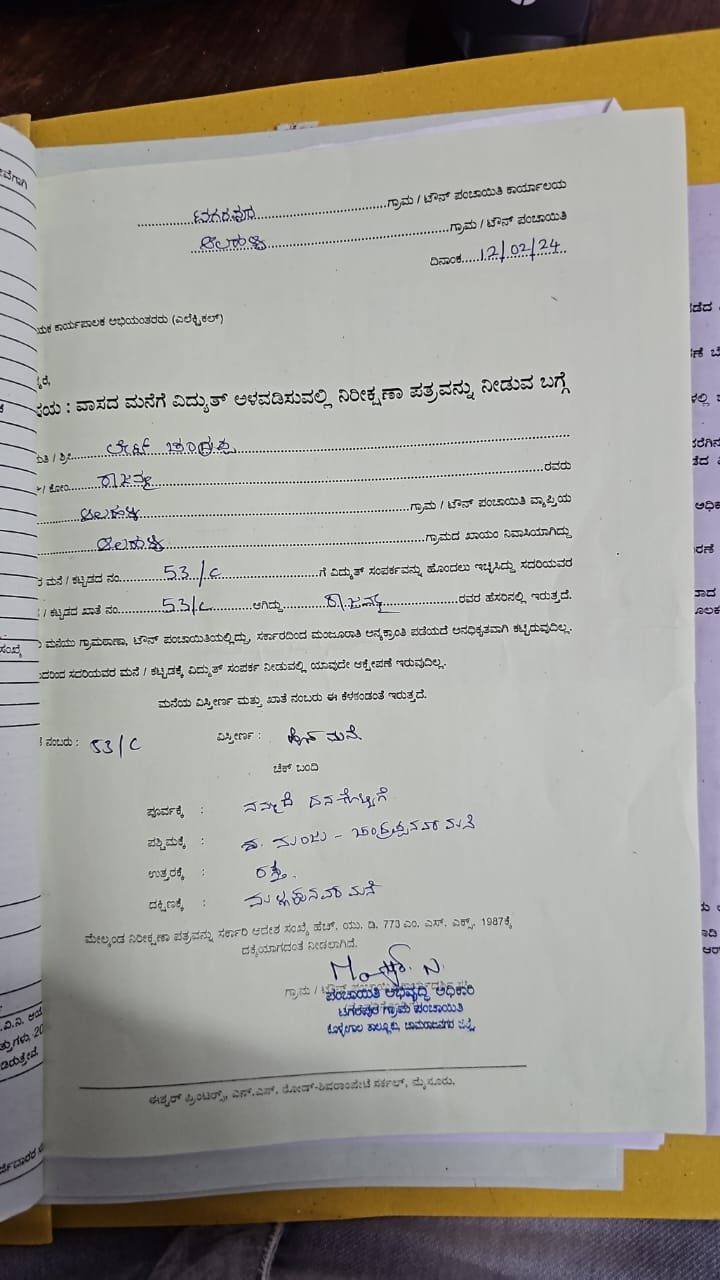 ಟಗರಪುರ ಗ್ರಾಮ / ಟೌನ್ ಪಂಚಾಯಿತಿ ಕಾರ್ಯಾಲಯ
ಗ್ರಾಮ / ಟೌನ್ ಪಂಚಾಯಿತಿ
ದಿನಾಂಕ 12/02/24
ಯಕ ಕಾರ್ಯಪಾಲಕ ಅಭಿಯಂತರರು (ಎಲೆಕ್ಟ್ರಿಕಲ್)
ರೆ,
ಷಯ : ವಾಸದ ಮನೆಗೆ ವಿದ್ಯುತ್ ಅಳವಡಿಸುವಲ್ಲಿ ನಿರೀಕ್ಷಣಾ ಪತ್ರವನ್ನು ನೀಡುವ ಬಗ್ಗೆ
ಮತಿ / ಶ್ರೀ ಲೇಟ್ ಚಂದ್ರಪ್ಪ
/ ಕೋಂ ರಾಜಮ್ಮ ರವರು
ಗ್ರಾಮ / ಟೌನ್ ಪಂಚಾಯಿತಿ ವ್ಯಾಪ್ತಿಯ
ಗ್ರಾಮದ ಖಾಯಂ ನಿವಾಸಿಯಾಗಿದ್ದು
ರ ಮನೆ / ಕಟ್ಟಡದ ನಂ. 53/C ಗೆ ವಿದ್ಯುತ್ ಸಂಪರ್ಕವನ್ನು ಹೊಂದಲು ಇಚ್ಛಿಸಿದ್ದು ಸದರಿಯವರ
/ ಕಟ್ಟಡದ ಖಾತೆ ನಂ. 53/C ಆಗಿದ್ದು ರಾಜಮ್ಮ ರವರ ಹೆಸರಿನಲ್ಲಿ ಇರುತ್ತದೆ.
ಮನೆಯು ಗ್ರಾಮಠಾಣಾ, ಟೌನ್ ಪಂಚಾಯಿತಿಯಲ್ಲಿದ್ದು, ಸರ್ಕಾರದಿಂದ ಮಂಜೂರಾತಿ ಅನ್ಯಕ್ರಾಂತಿ ಪಡೆಯದೆ ಅನಧಿಕೃತವಾಗಿ ಕಟ್ಟಿರುವುದಿಲ್ಲ.
ದರಿಂದ ಸದರಿಯವರ ಮನೆ / ಕಟ್ಟಡಕ್ಕೆ ವಿದ್ಯುತ್ ಸಂಪರ್ಕ ನೀಡುವಲ್ಲಿ ಯಾವುದೇ ಆಕ್ಷೇಪಣೆ ಇರುವುದಿಲ್ಲ.
ಮನೆಯ ವಿಸ್ತೀರ್ಣ ಮತ್ತು ಖಾತೆ ನಂಬರು ಈ ಕೆಳಕಂಡಂತೆ ಇರುತ್ತದೆ.
ನಂಬರು : 53/C ವಿಸ್ತೀರ್ಣ : ಮನೆ
ಚೆಕ್ ಬಂದಿ
ಪೂರ್ವಕ್ಕೆ : ದನಕೊಟ್ಟಿಗೆ
ಪಶ್ಚಿಮಕ್ಕೆ : ಮಂಜು - ಚಂದ್ರಪ್ಪನವರ ಮನೆ
ಉತ್ತರಕ್ಕೆ : ರಸ್ತೆ.
ದಕ್ಷಿಣಕ್ಕೆ : ಮನೆ
ಮೇಲ್ಕಂಡ ನಿರೀಕ್ಷಣಾ ಪತ್ರವನ್ನು ಸರ್ಕಾರಿ ಆದೇಶ ಸಂಖ್ಯೆ ಹೆಚ್. ಯು. ಡಿ. 773 ಎಂ. ಎಸ್. ಎಕ್ಸ್. 1987ಕ್ಕೆ
ದಕ್ಕೆಯಾಗದಂತೆ ನೀಡಲಾಗಿದೆ.
ಗ್ರಾಮ / ಟೌನ್
ಪಂಚಾಯಿತಿ ಅಭಿವೃದ್ಧಿ ಅಧಿಕಾರಿ
ಟಗರಪುರ ಗ್ರಾಮ ಪಂಚಾಯಿತಿ
ಕೊಳ್ಳೇಗಾಲ ತಾಲ್ಲೂಕು, ಚಾಮರಾಜನಗರ ಜಿಲ್ಲೆ
ಈಶ್ವರ್ ಪ್ರಿಂಟರ್ಸ್, ಎನ್.ಎಸ್. ರೋಡ್-ಶಿವರಾಂಪೇಟೆ ಸರ್ಕಲ್, ಮೈಸೂರು.